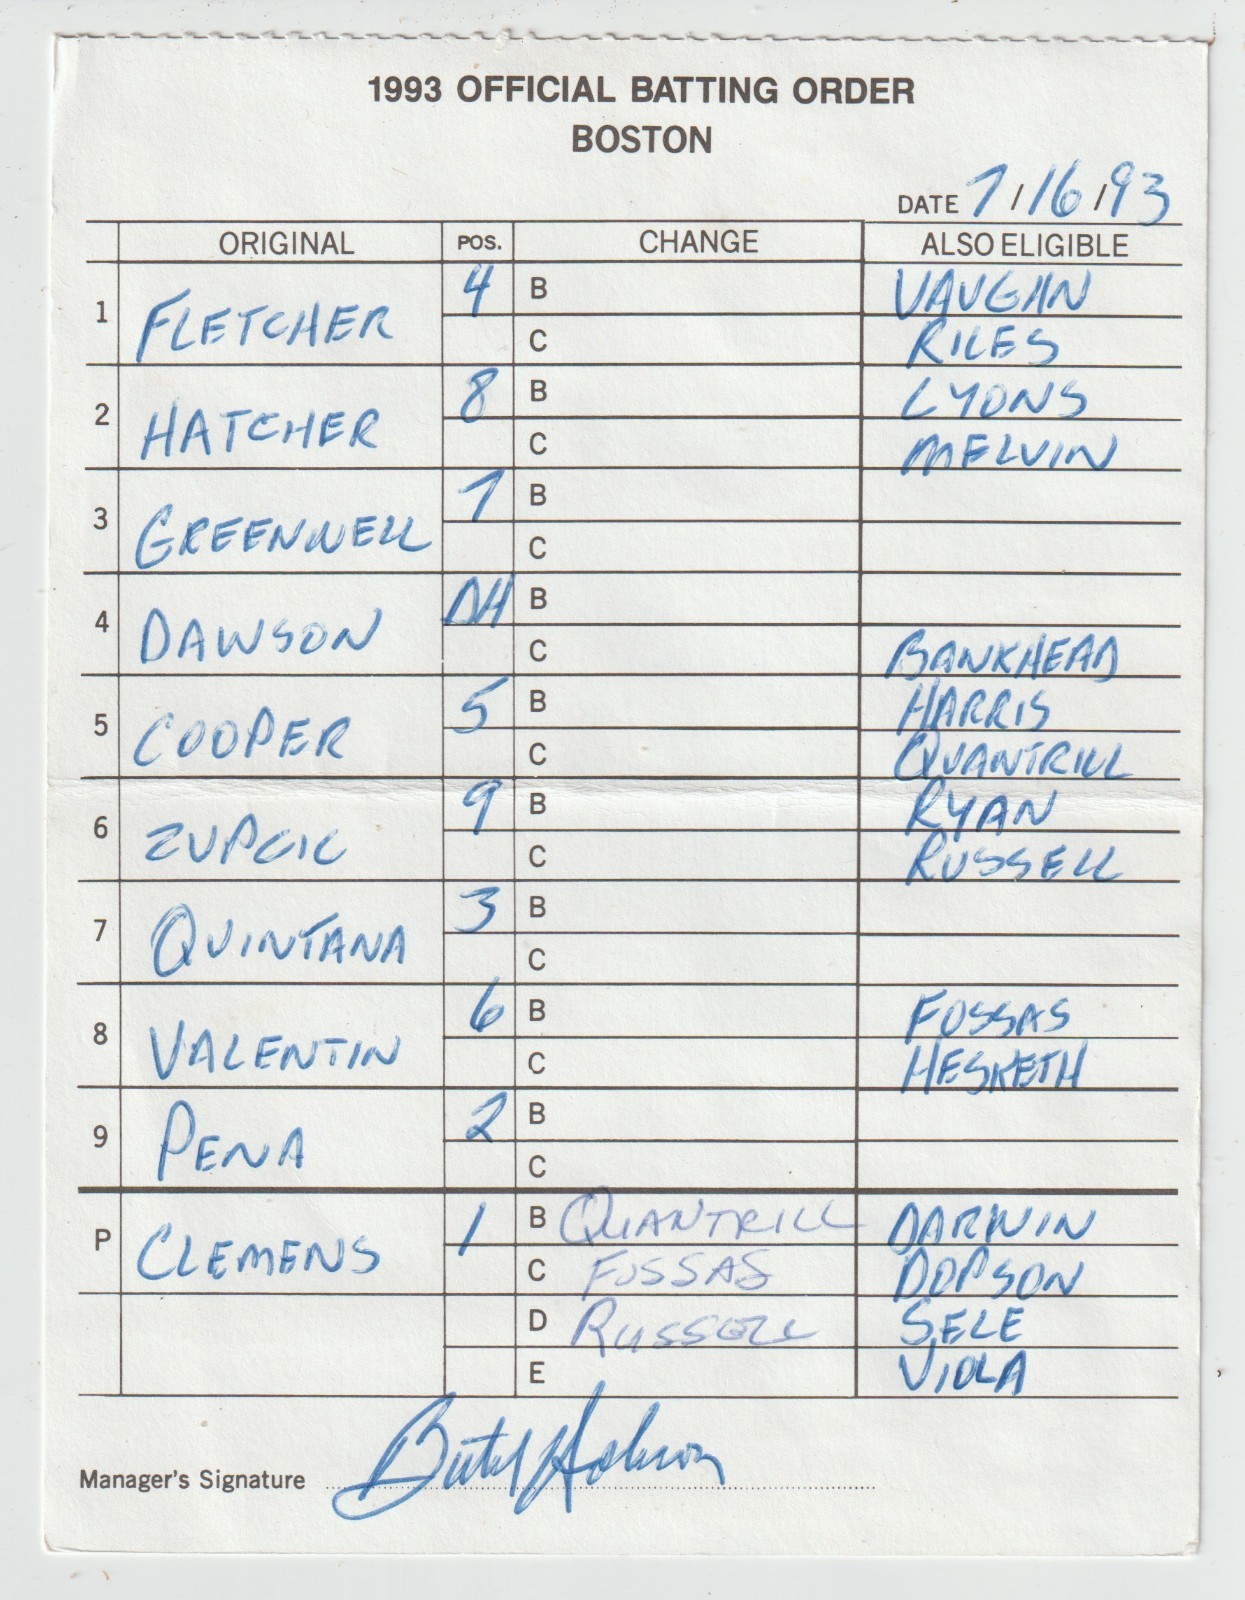 1993 OFFICIAL BATTING ORDER
BOSTON
DATE 7/16/93
ORIGINAL POS. CHANGE ALSO ELIGIBLE
1 FLETCHER 4 B VAUGHN
C RILES
2 HATCHER 8 B LYONS
C MELVIN
3 GREENWELL 7 B
C
4 DAWSON DH B
C BANKHEAD
5 COOPER 5 B HARRIS
C QUANTRILL
6 ZUPCIC 9 B RYAN
C RUSSELL
7 QUINTANA 3 B
C
8 VALENTIN 6 B FOSSAS
C HESKETH
9 PENA 2 B
C
P CLEMENS 1 B QUANTRILL DARWIN
C FOSSAS DOPSON
D RUSSELL SELE
E VIOLA
Manager's Signature Butch Hobson